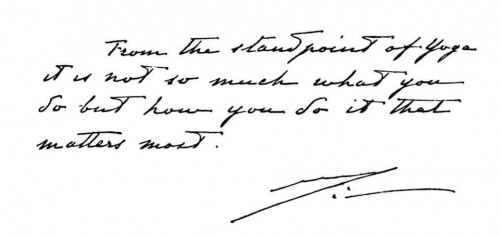 From the standpoint of Yoga
it is not so much what you
do but how you do it that
matters most.